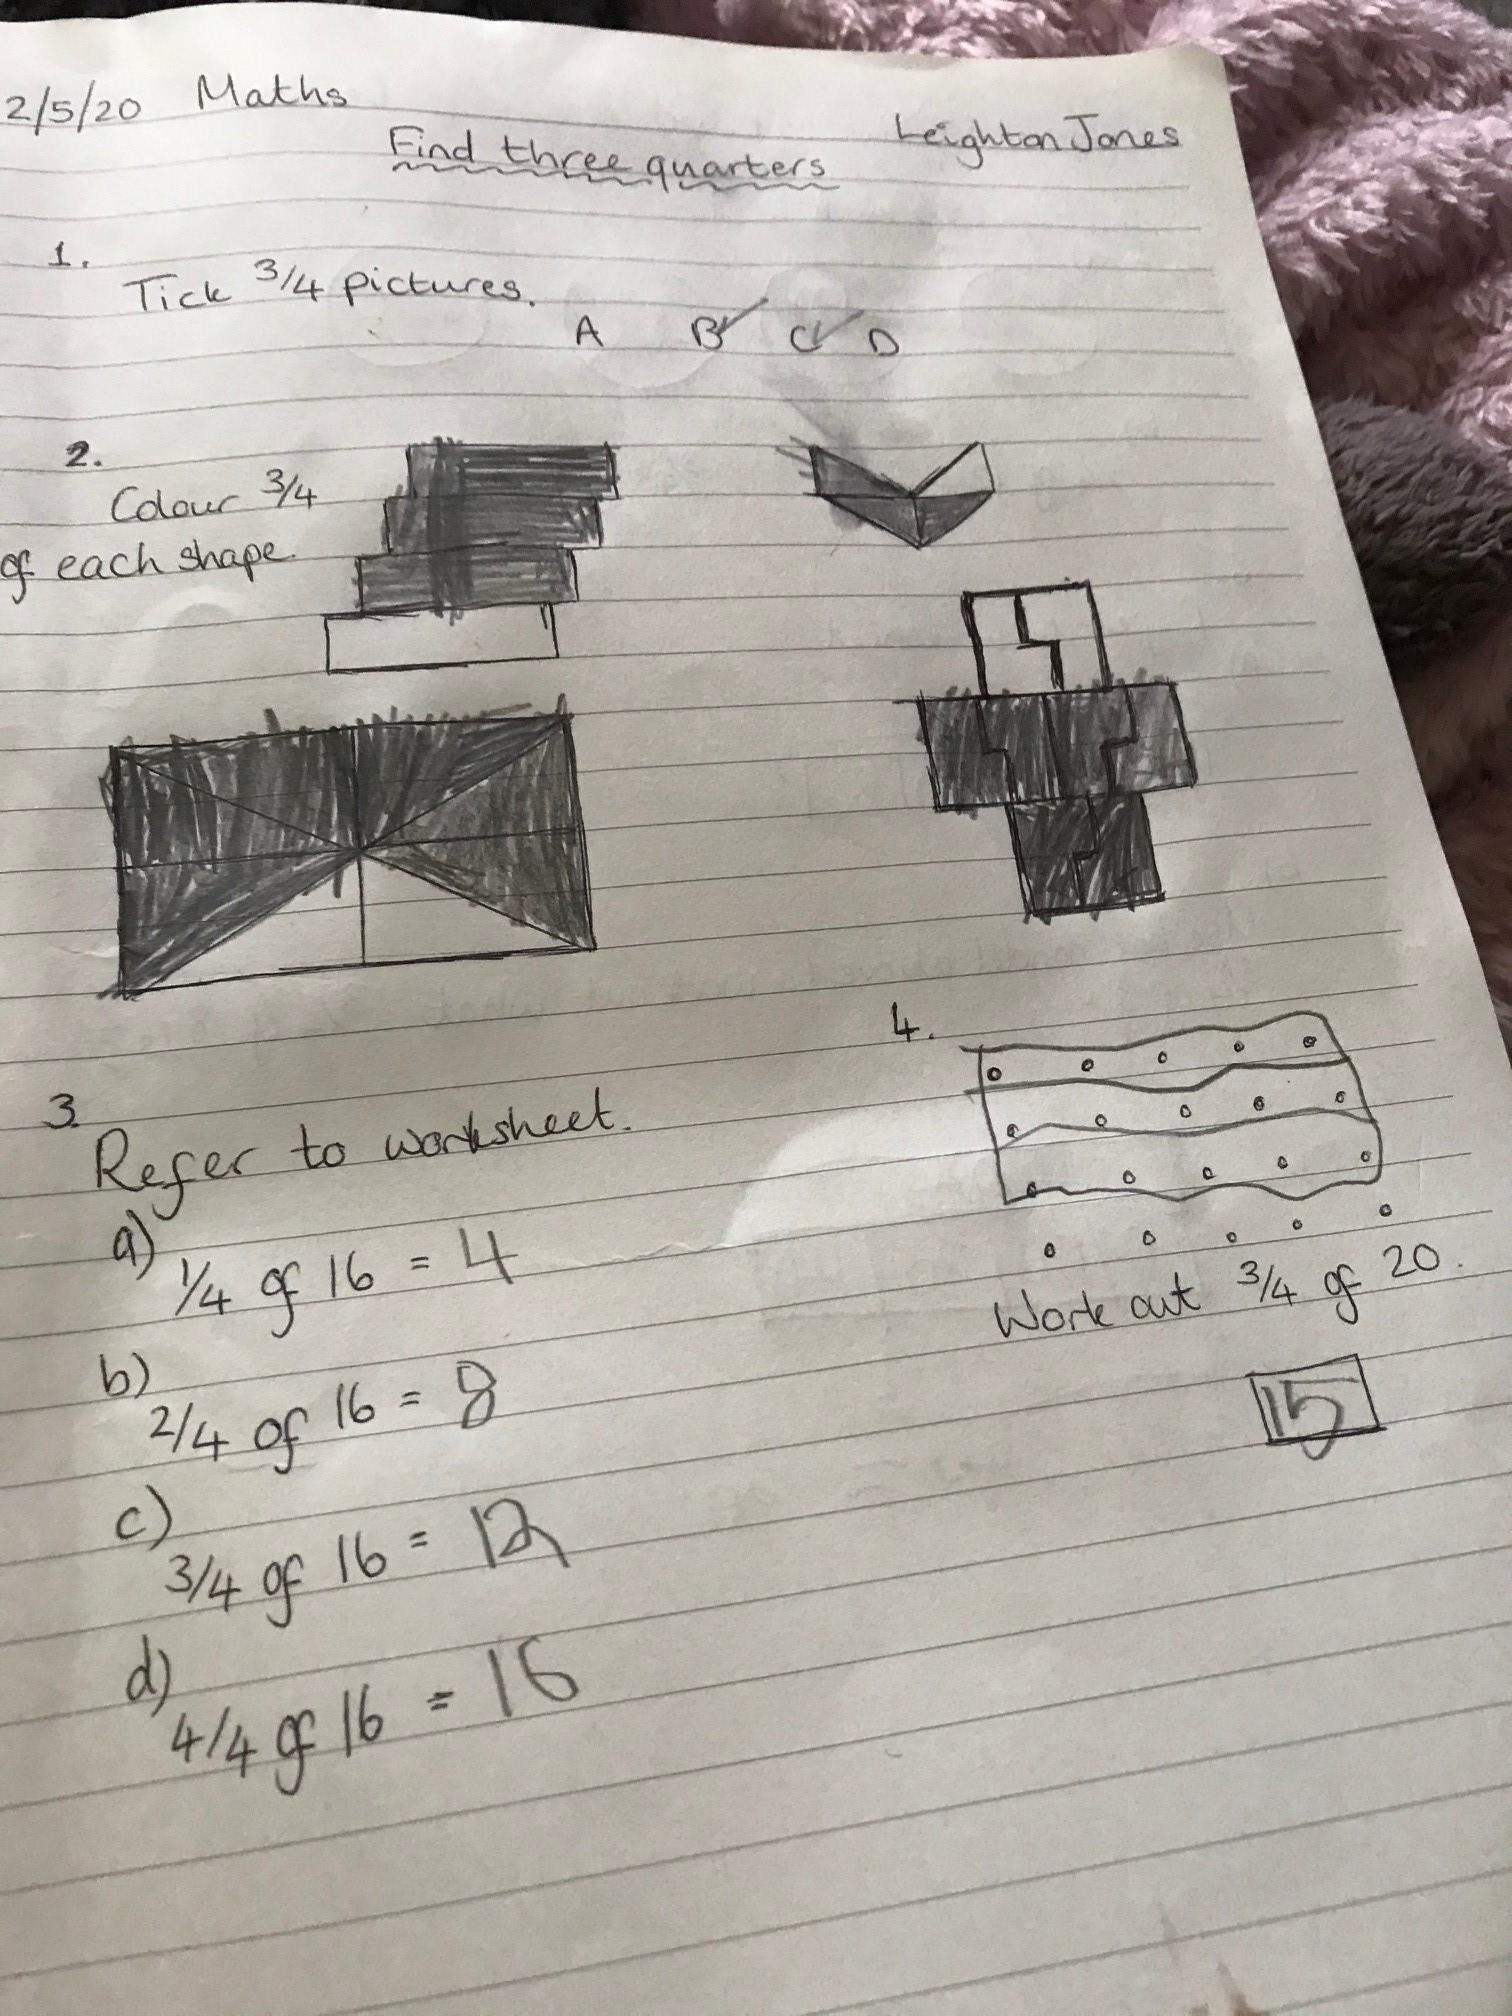 2/5/20 Maths
Leighton Jones
Find three quarters
1.
Tick 3/4 pictures.
A B✓ C✓ D
2.
Colour 3/4
of each shape.
3.
Refer to worksheet.
a)
1/4 of 16 = 4
b)
2/4 of 16 = 8
c)
3/4 of 16 = 12
d)
4/4 of 16 = 16
4.
Work out 3/4 of 20.
15